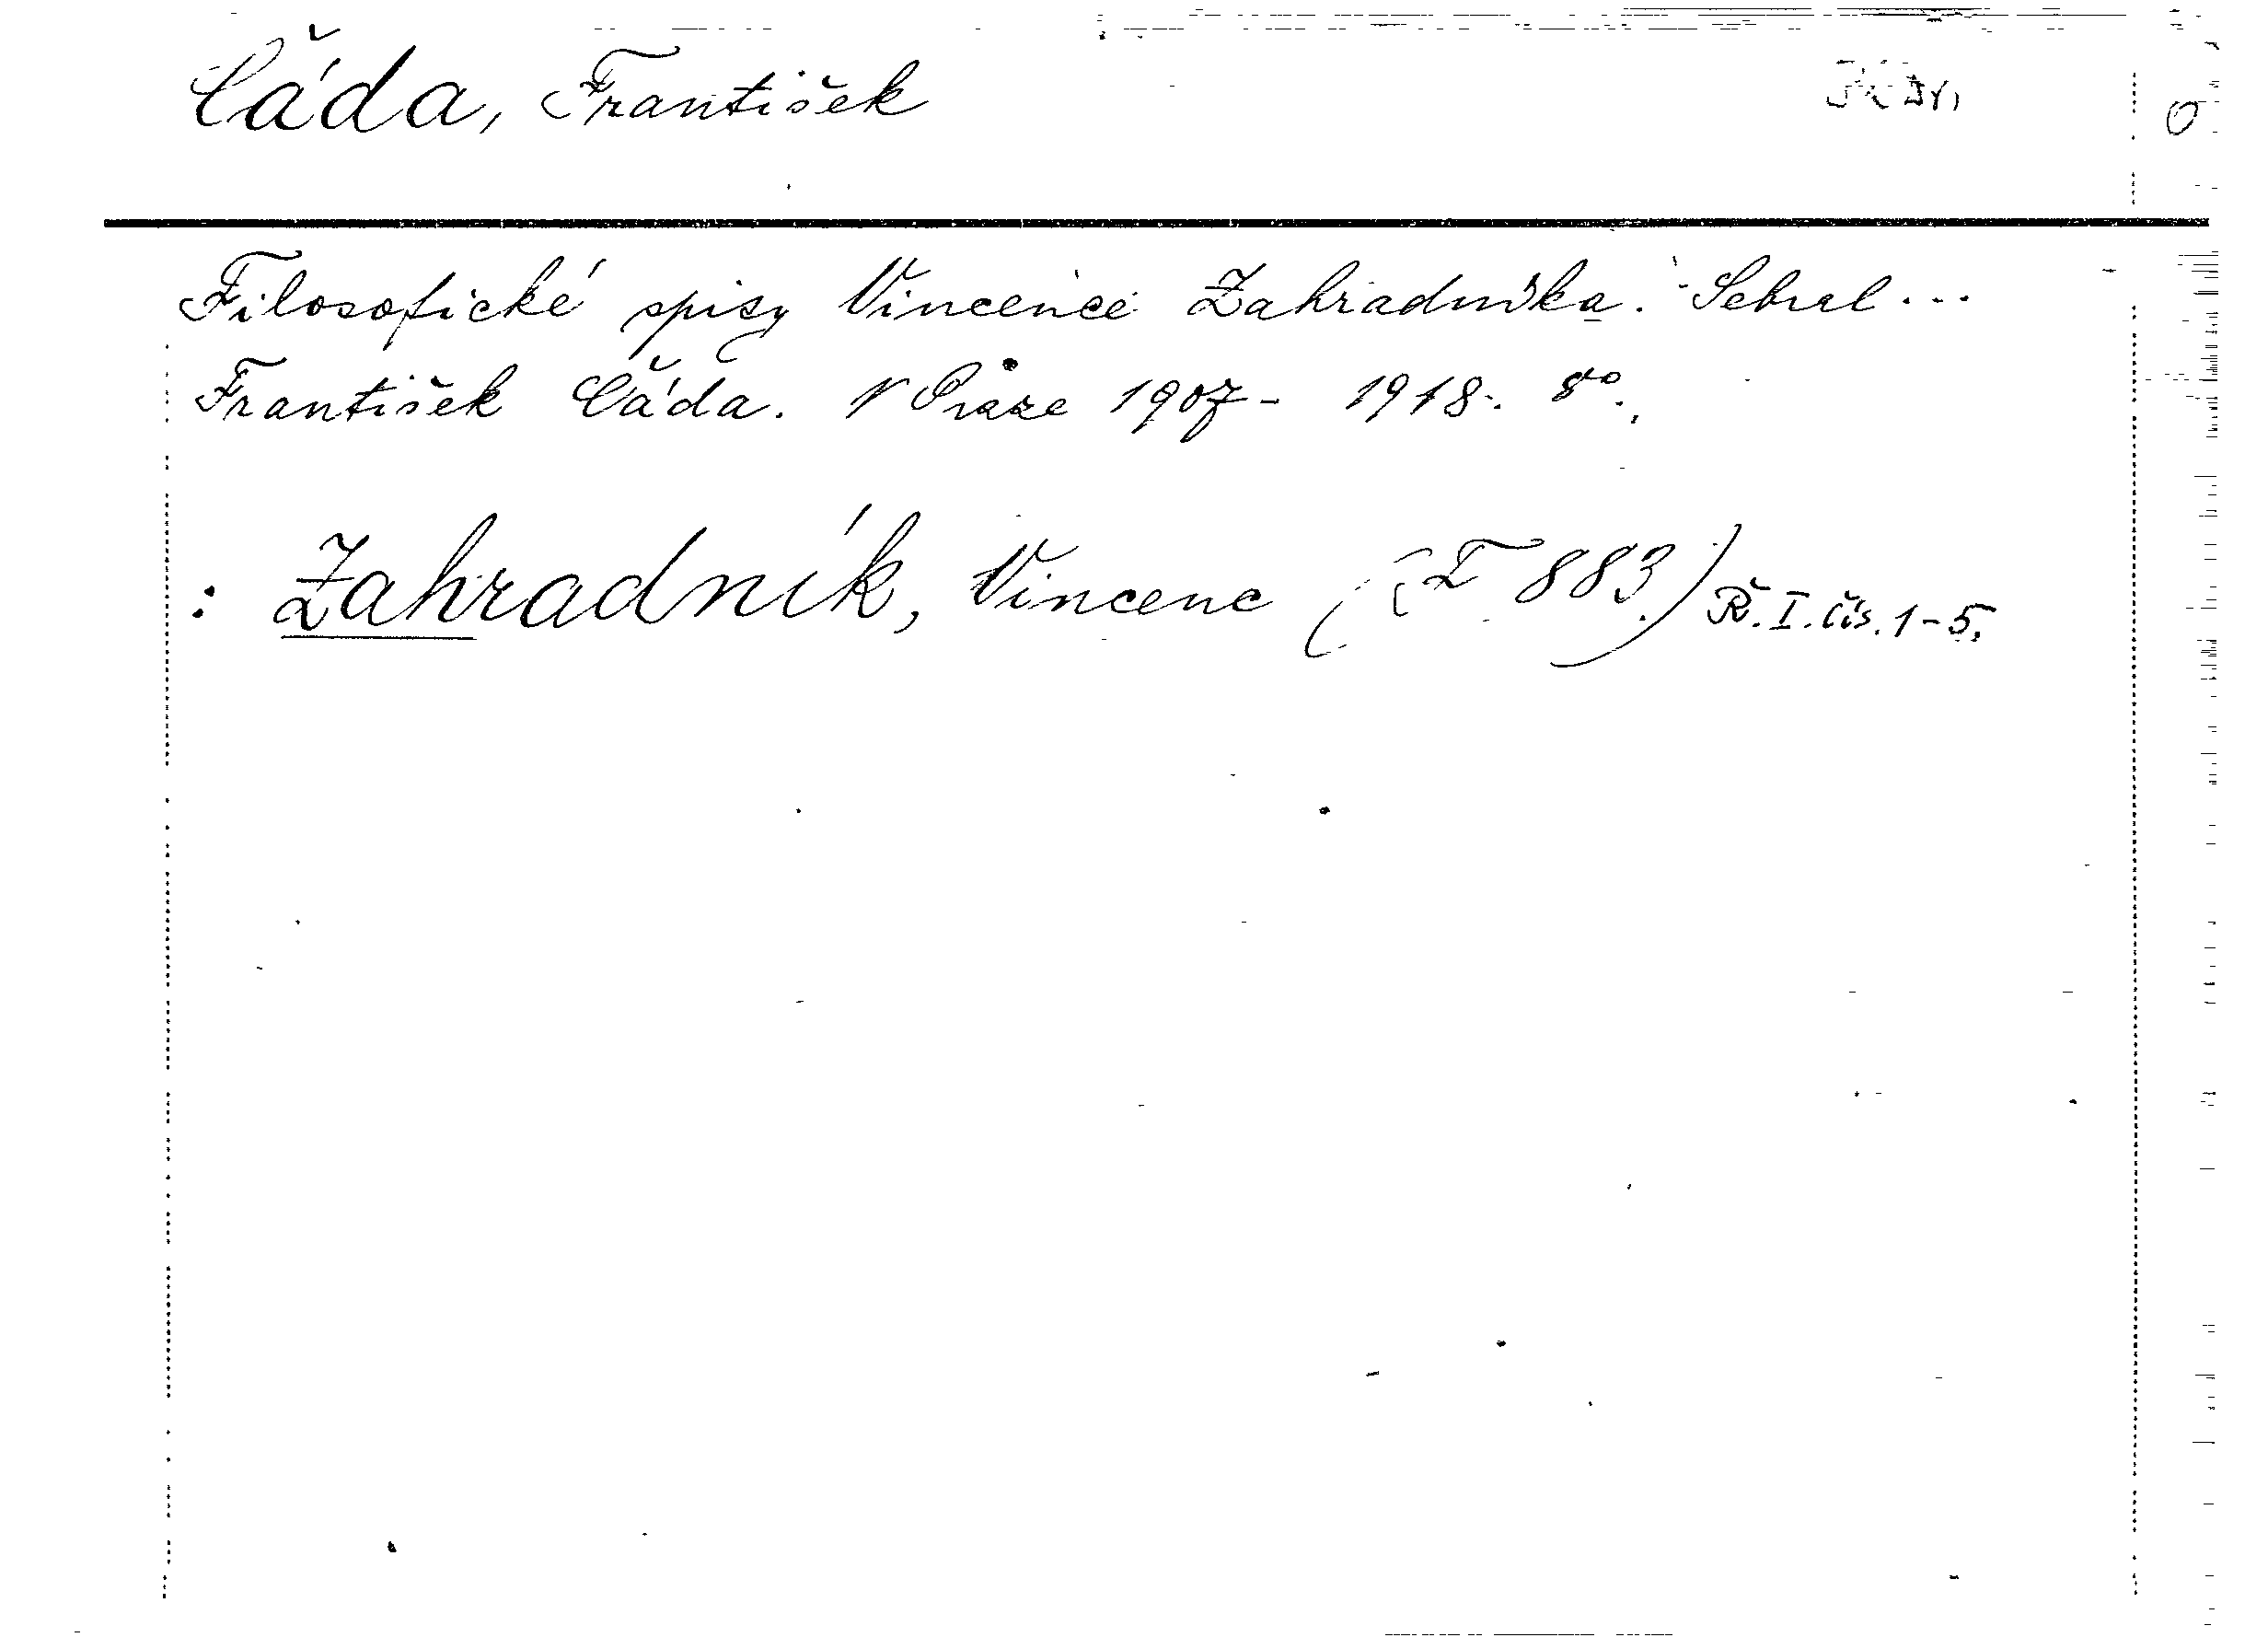 Čáda, František
Filosofické spisy Vincence Zahradníka. Sebral...
František Čáda. V Praze 1907 - 1918. 8°.
: Zahradník, Vincenc (F 883) Ř. I. čís. 1-5.